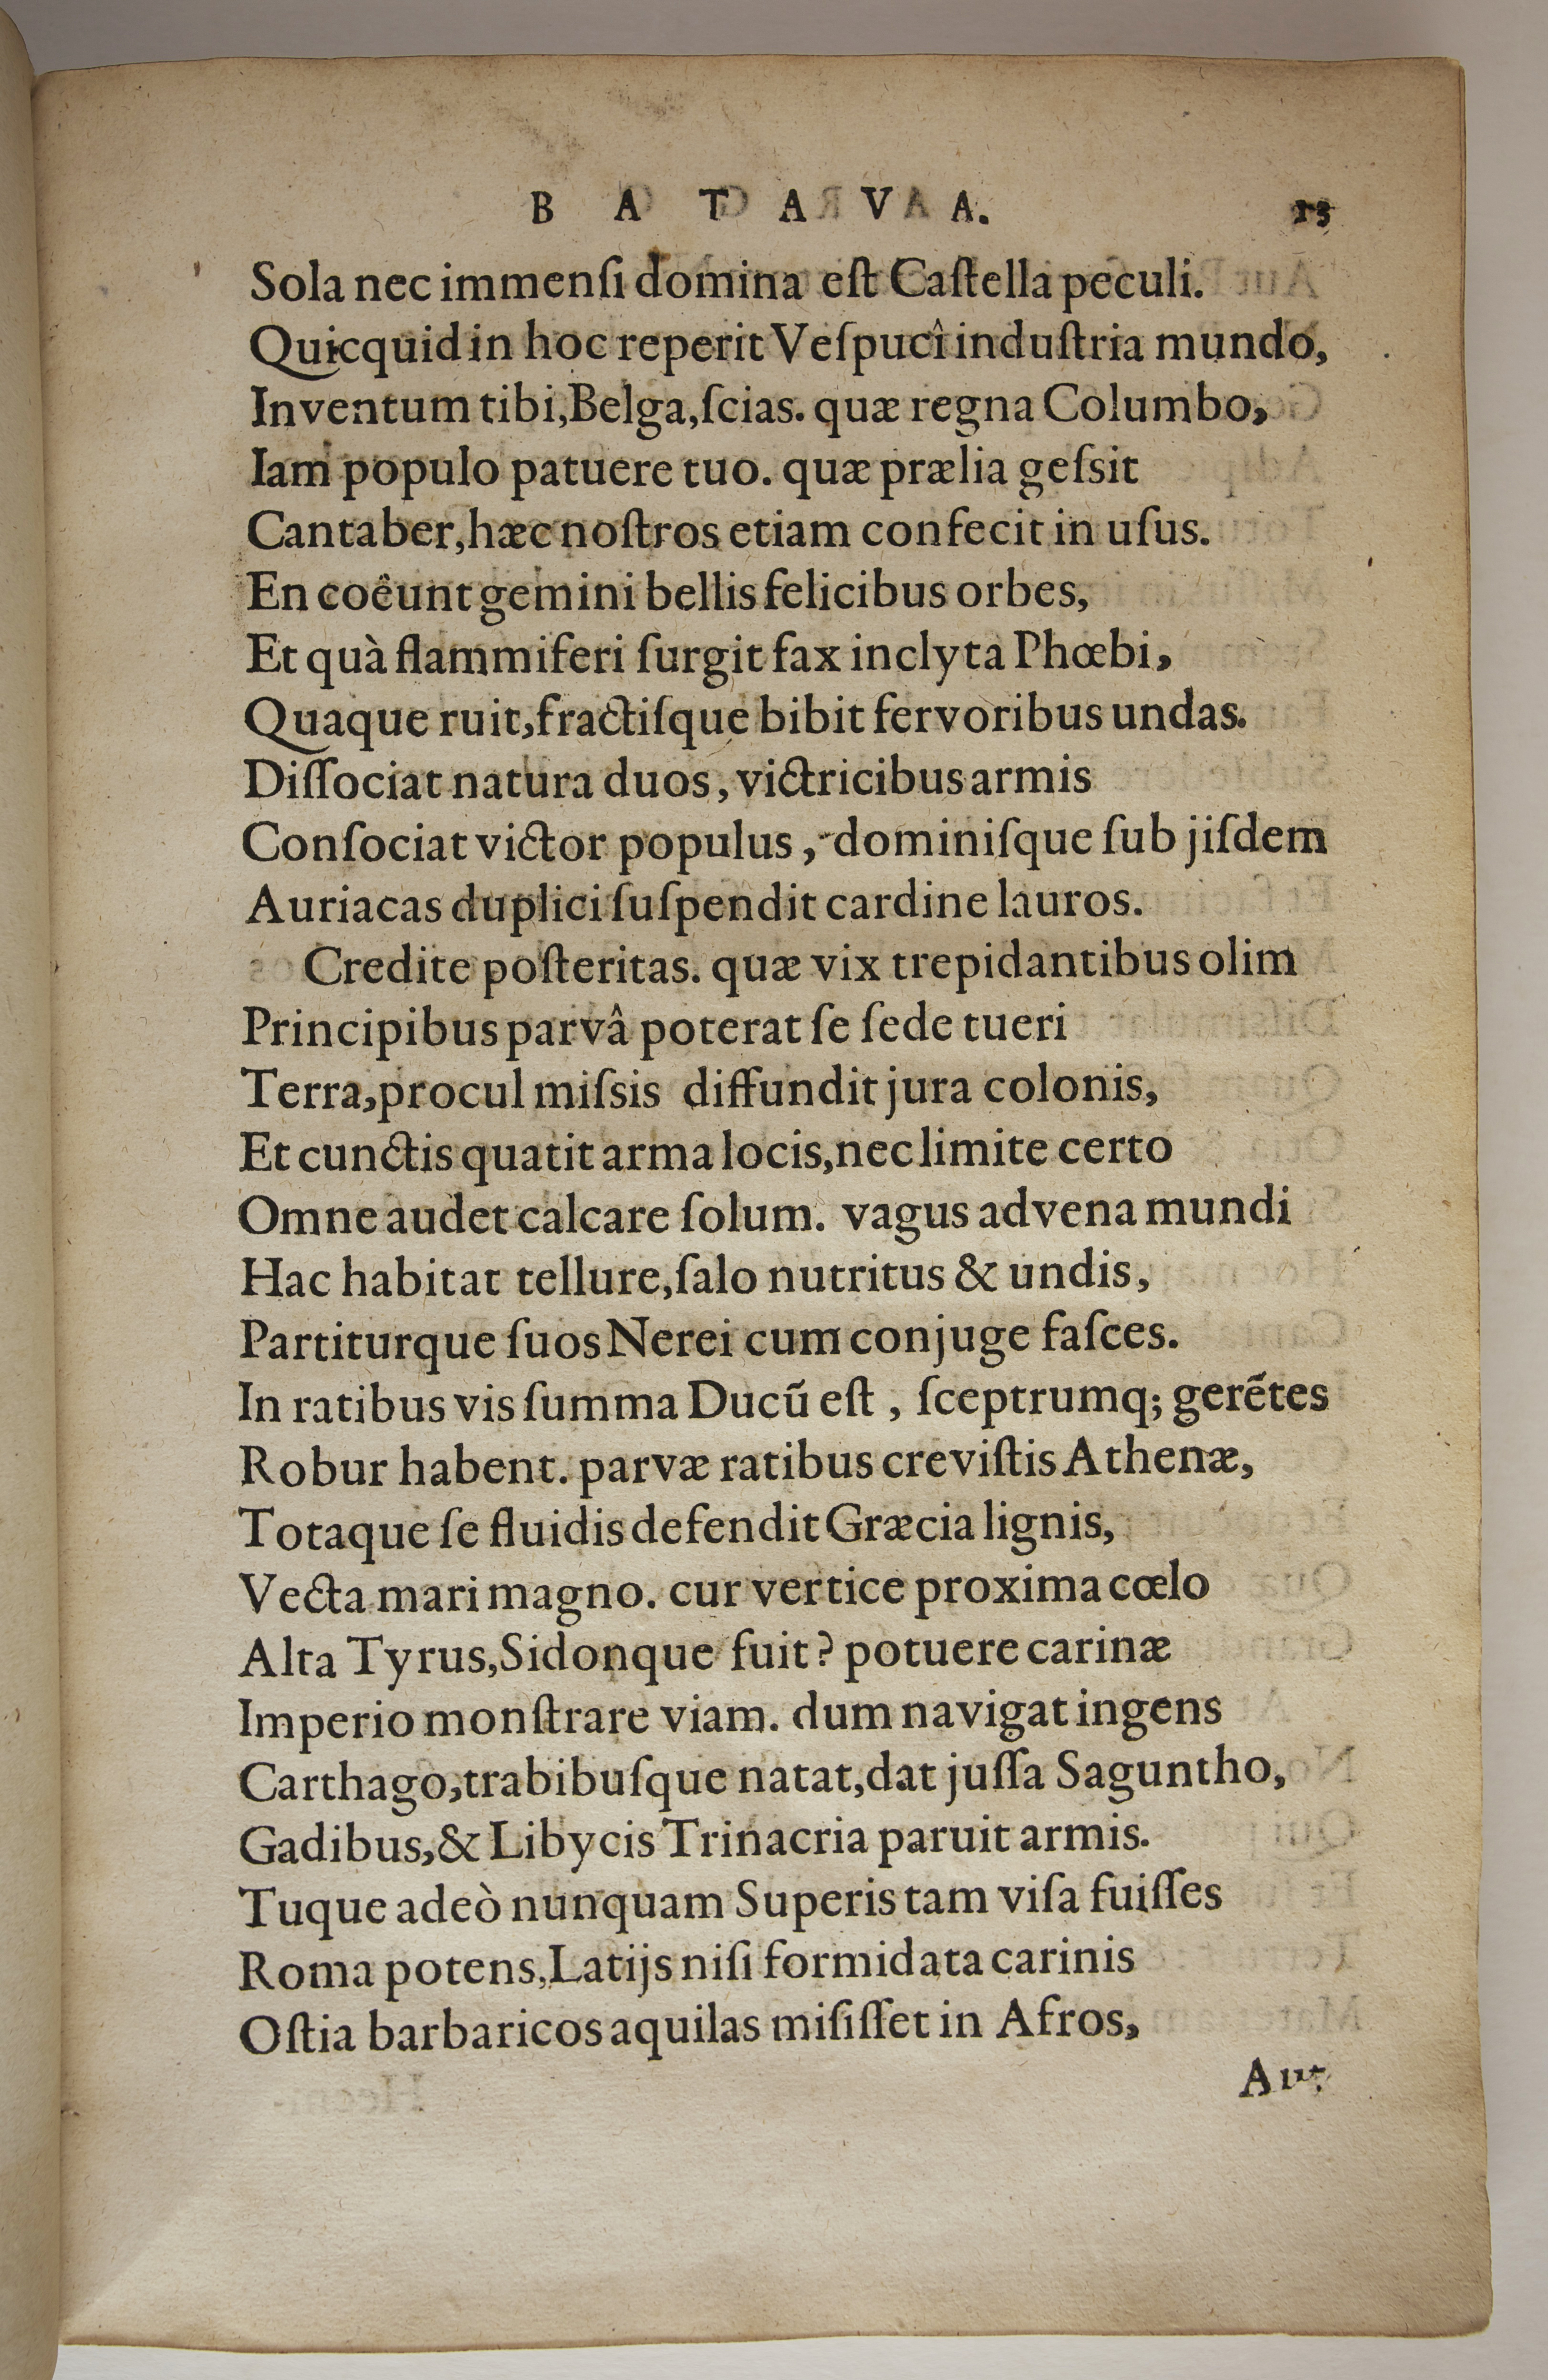 B A T A V A. 13
Sola nec immenſi domina eſt Caſtella peculi.
Quicquid in hoc reperit Veſpucî induſtria mundo,
Inventum tibi, Belga, ſcias. quæ regna Columbo,
Iam populo patuere tuo. quæ prælia geſsit
Cantaber, hæc noſtros etiam confecit in uſus.
En coêunt gemini bellis felicibus orbes,
Et quà flammiferi ſurgit fax inclyta Phœbi,
Quaque ruit, fractiſque bibit fervoribus undas.
Diſſociat natura duos, victricibus armis
Conſociat victor populus, dominiſque ſub jiſdem
Auriacas duplici ſuſpendit cardine lauros.
Credite poſteritas. quæ vix trepidantibus olim
Principibus parvâ poterat ſe ſede tueri
Terra, procul miſsis diffundit jura colonis,
Et cunctis quatit arma locis, nec limite certo
Omne audet calcare ſolum. vagus advena mundi
Hac habitat tellure, ſalo nutritus & undis,
Partiturque ſuos Nerei cum conjuge faſces.
In ratibus vis ſumma Ducũ eſt, ſceptrumq; gerẽtes
Robur habent. parvæ ratibus creviſtis Athenæ,
Totaque ſe fluidis defendit Græcia lignis,
Vecta mari magno. cur vertice proxima cœlo
Alta Tyrus, Sidonque fuit? potuere carinæ
Imperio monſtrare viam. dum navigat ingens
Carthago, trabibuſque natat, dat juſſa Saguntho,
Gadibus, & Libycis Trinacria paruit armis.
Tuque adeò nunquam Superis tam viſa fuiſſes
Roma potens, Latijs niſi formidata carinis
Oſtia barbaricos aquilas miſiſſet in Afros,
Aut